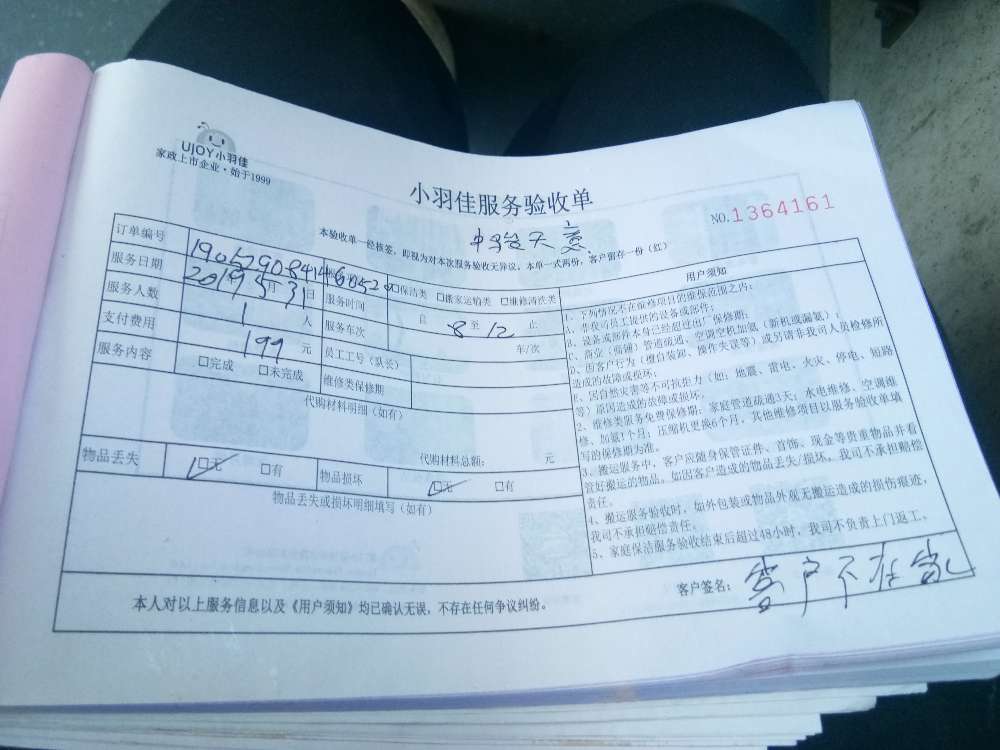 UJOY小羽佳
家政上市企业·始于1999
小羽佳服务验收单
NO.1364161
本验收单一经核签，即视为对本次服务验收无异议，本单一式两份，客户留存一份（红）
订单编号
□保洁类 □搬家运输类 □维修清洗类
用户须知
服务日期 2019年5月31日 服务时间 自 8 至 12 止
服务人数 1 人 服务车次 车/次
支付费用 199 元 员工工号（队长）
服务内容 □完成 □未完成 维修类保修期
代购材料明细（如有）
代购材料总额： 元
物品丢失 □无 □有 物品损坏 □无 □有
物品丢失或损坏明细填写（如有）
1、下列情况不在保修项目的维保范围之内：
A、非我司员工提供的设备或部件；
B、设备或部件本身已经超过出厂保修期；
C、商业（商铺）管道疏通、空调空机加氨（新机或漏氨）；
D、因客户行为（擅自装卸、操作失误等）或另请非我司人员检修所
造成的故障或损坏。
E、因自然灾害等不可抗重力（如：地震、雷电、火灾、停电、短路
等）原因造成的故障或损坏。
2、维修类服务免费保修期：家庭管道疏通3天；水电维修、空调维
修、加氨1个月；压缩机更换6个月，其他维修项目以服务验收单填
写的保修期为准。
3、搬运服务中，客户应随身保管证件、首饰、现金等贵重物品并看
管好搬运的物品。如因客户造成的物品丢失/损坏，我司不承担赔偿
责任。
4、搬运服务验收时，如外包装或物品外观无搬运造成的损伤痕迹，
我司不承担赔偿责任。
5、家庭保洁服务验收结束后超过48小时，我司不负责上门返工。
本人对以上服务信息以及《用户须知》均已确认无误，不存在任何争议纠纷。
客户签名： 客户不在家